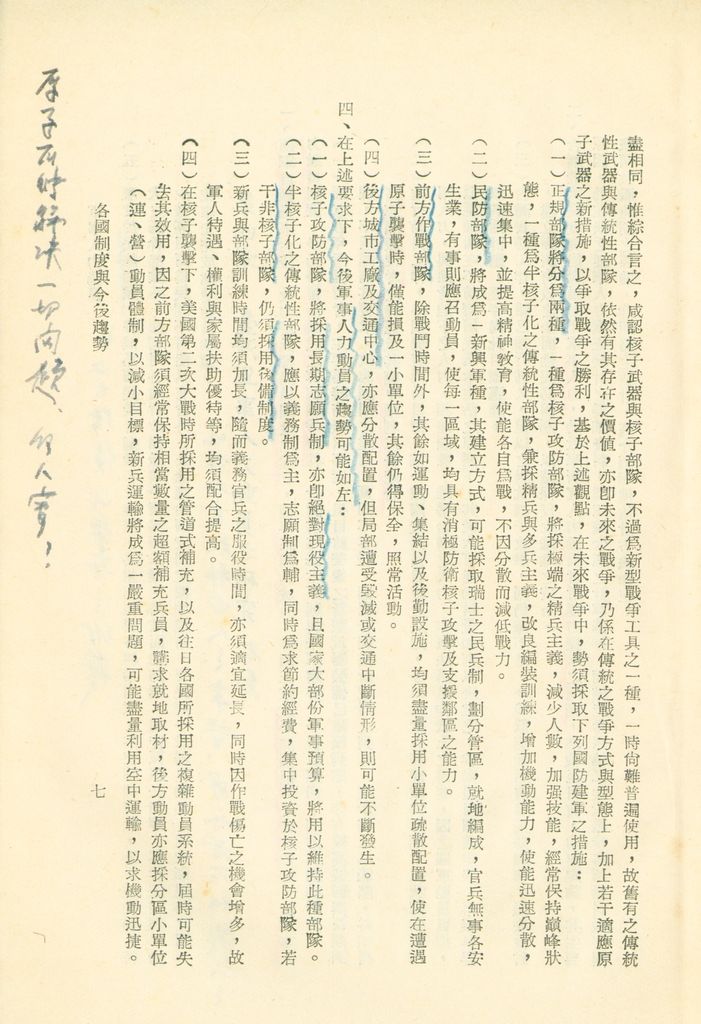 盡相同，惟綜合言之，咸認核子武器與核子部隊，不過爲新型戰爭工具之一種，一時尙難普遍使用，故舊有之傳統
性武器與傳統性部隊，依然有其存在之價值，亦卽未來之戰爭，乃係在傳統之戰爭方式與型態上，加上若干適應原
子武器之新措施，以爭取戰爭之勝利，基於上述觀點，在未來戰爭中，勢須採取下列國防建軍之措施：
（一）正規部隊將分爲兩種，一種爲核子攻防部隊，將採極端之精兵主義，減少人數，加强技能，經常保持巔峰狀
態，一種爲半核子化之傳統性部隊，兼採精兵與多兵主義，改良編裝訓練，增加機動能力，使能迅速分散，
迅速集中，並提高精神敎育，使能各自爲戰，不因分散而減低戰力。
（二）民防部隊，將成爲一新興軍種，其建立方式，可能採取瑞士之民兵制，劃分管區，就地編成，官兵無事各安
生業，有事則應召動員，使每一區域，均具有消極防衛核子攻擊及支援鄰區之能力。
（三）前方作戰部隊，除戰鬥時間外，其餘如運動、集結以及後勤設施，均須盡量採用小單位疏散配置，使在遭遇
原子襲擊時，僅能損及一小單位，其餘仍得保全，照常活動。
（四）後方城市工廠及交通中心，亦應分散配置，但局部遭受毀滅或交通中斷情形，則可能不斷發生。
四、在上述要求下，今後軍事人力動員之趨勢可能如左：
（一）核子攻防部隊，將採用長期志願兵制，亦卽絕對現役主義，且國家大部份軍事預算，將用以維持此種部隊。
（二）半核子化之傳統性部隊，應以義務制爲主，志願制爲輔，同時爲求節約經費，集中投資於核子攻防部隊，若
干非核子部隊，仍須採用後備制度。
（三）新兵與部隊訓練時間均須加長，隨而義務官兵之服役時間，亦須適宜延長，同時因作戰傷亡之機會增多，故
軍人待遇、權利與家屬扶助優待等，均須配合提高。
（四）在核子襲擊下，美國第二次大戰時所採用之管道式補充，以及往日各國所採用之複雜動員系統，屆時可能失
去其效用，因之前方部隊須經常保持相當數量之超額補充兵員，講求就地取材，後方動員亦應採分區小單位
（連、營）動員體制，以減小目標，新兵運輸將成爲一嚴重問題，可能盡量利用空中運輸，以求機動迅捷。
各國制度與今後趨勢
七
原子
一切問題、